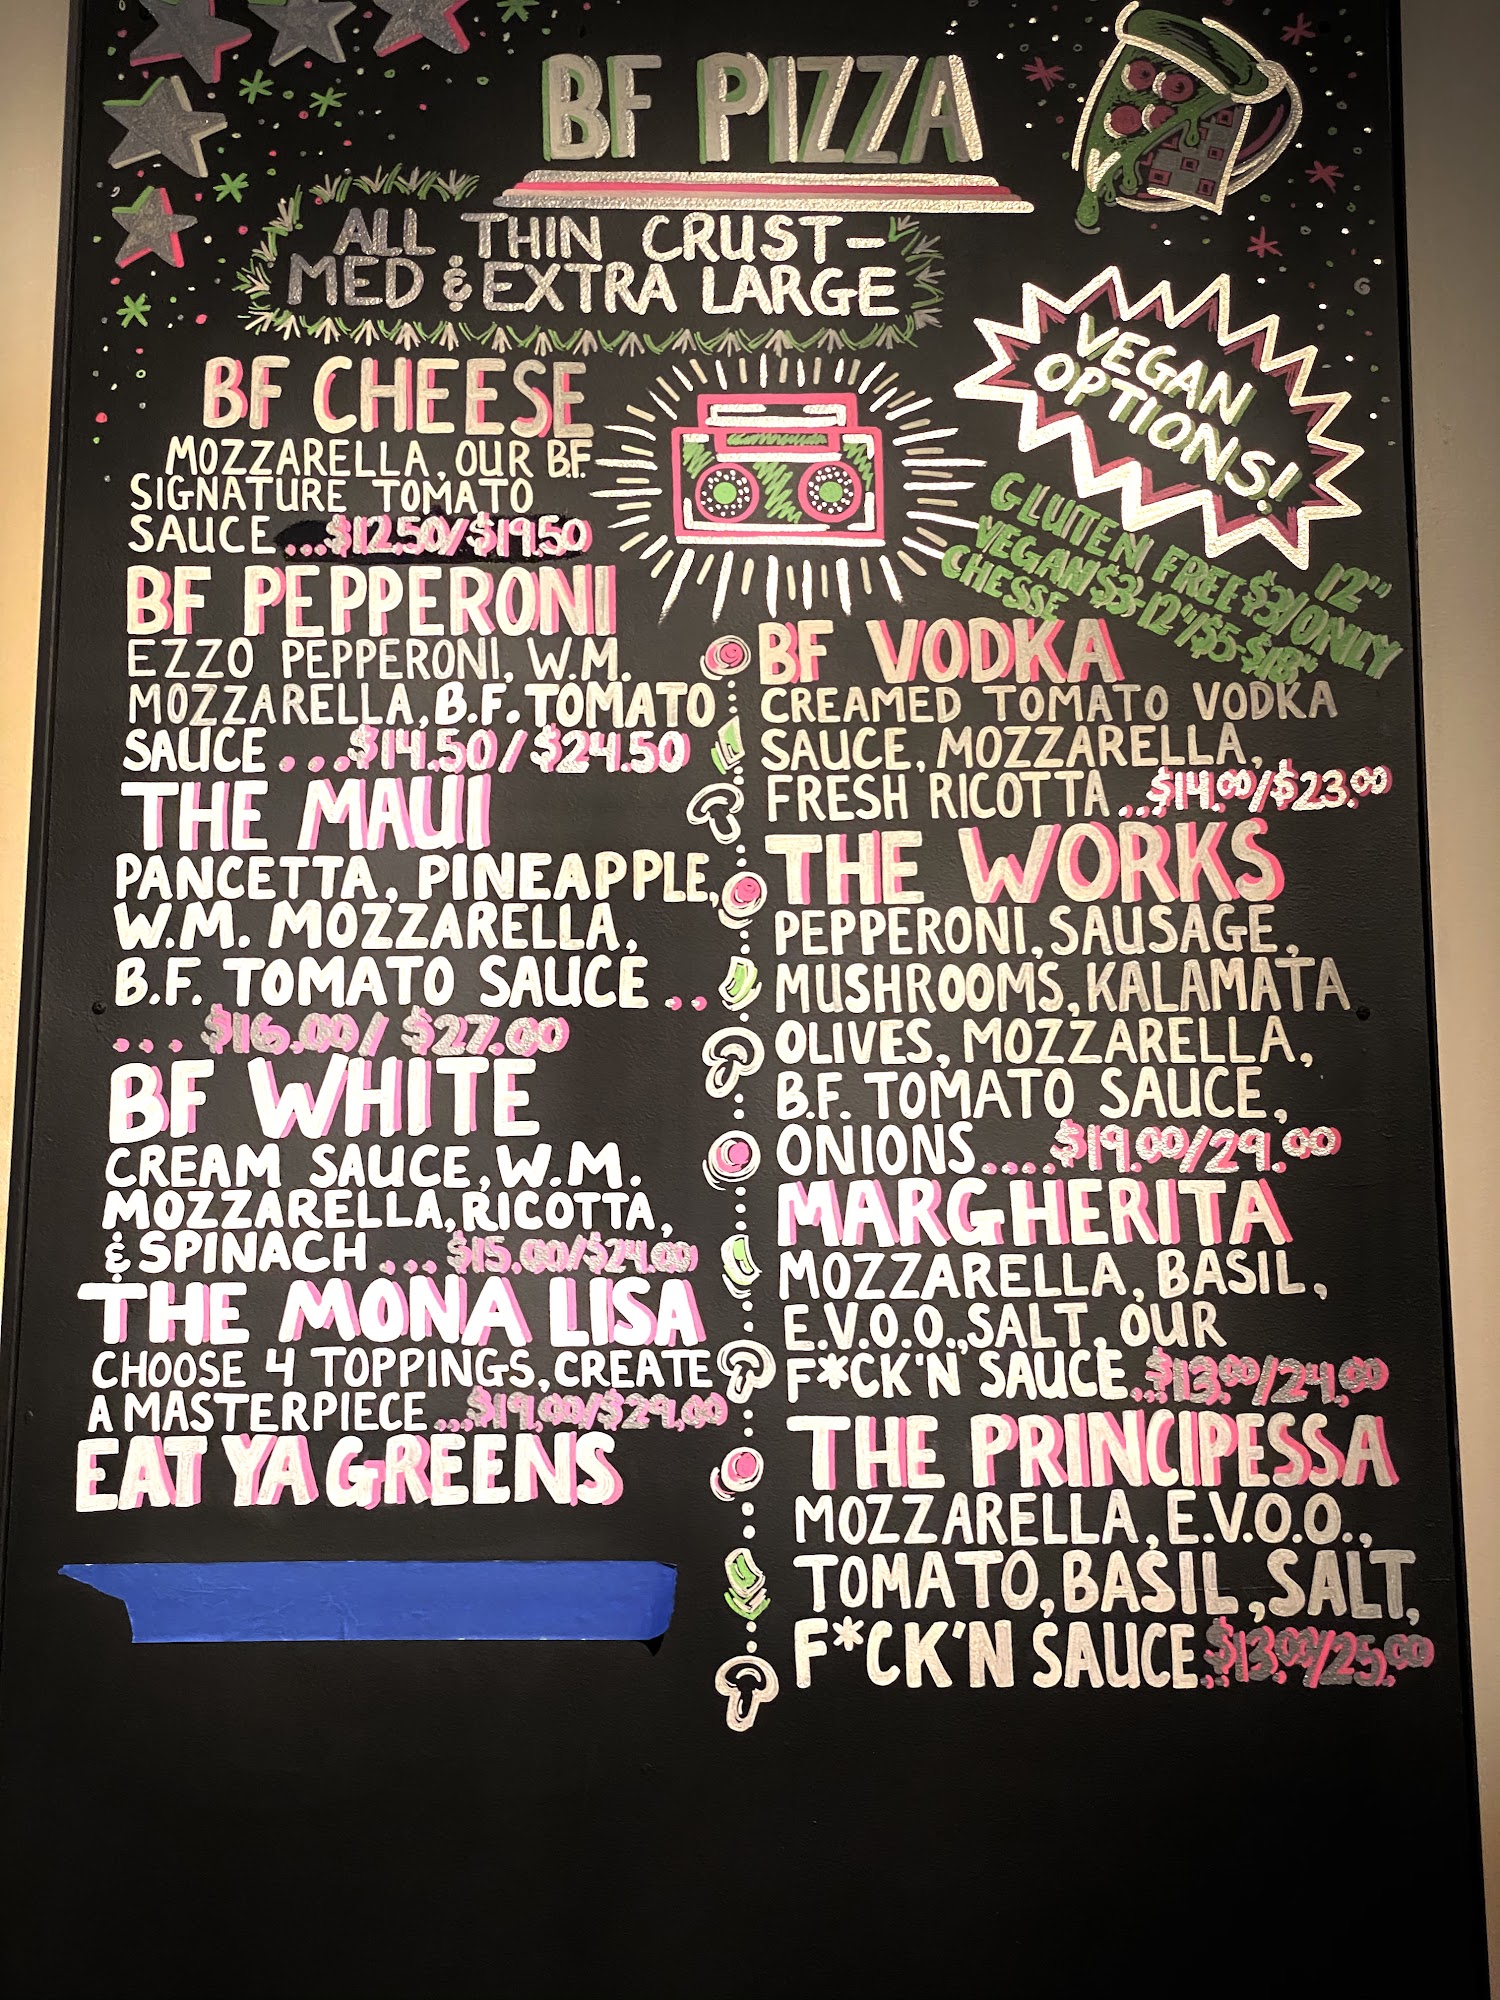 BF PIZZA
ALL THIN CRUST-
MED & EXTRA LARGE
VEGAN
OPTIONS!
GLUTEN FREE $3/ONLY 12"
VEGAN $3-12"/$5-$18"
CHESSE
BF CHEESE
MOZZARELLA, OUR B.F.
SIGNATURE TOMATO
SAUCE ...$12.50/$19.50
BF PEPPERONI
EZZO PEPPERONI, W.M.
MOZZARELLA, B.F. TOMATO
SAUCE ...$14.50/$24.50
THE MAUI
PANCETTA, PINEAPPLE,
W.M. MOZZARELLA,
B.F. TOMATO SAUCE ..
... $16.00/ $27.00
BF WHITE
CREAM SAUCE, W.M.
MOZZARELLA, RICOTTA,
& SPINACH ... $15.00/$24.00
THE MONA LISA
CHOOSE 4 TOPPINGS, CREATE
A MASTERPIECE ...$19.00/$29.00
EAT YA GREENS
BF VODKA
CREAMED TOMATO VODKA
SAUCE, MOZZARELLA,
FRESH RICOTTA ...$14.00/$23.00
THE WORKS
PEPPERONI, SAUSAGE,
MUSHROOMS, KALAMATA
OLIVES, MOZZARELLA,
B.F. TOMATO SAUCE,
ONIONS....$19.00/29.00
MARGHERITA
MOZZARELLA, BASIL,
E.V.O.O., SALT, OUR
F*CK'N SAUCE...$13.00/24.00
THE PRINCIPESSA
MOZZARELLA, E.V.O.O.,
TOMATO, BASIL, SALT,
F*CK'N SAUCE..$13.00/25.00